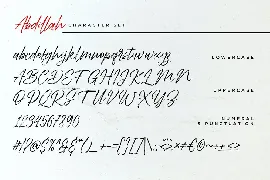 Abdillah CHARACTER SET
abcdefghijklmnopqrstuvwxyz LOWERCASE
ABCDEFGHIJKLMN
OPQRSTUVWXYZ UPPERCASE
1234567890 NUMERAL
& PUNCTUATION